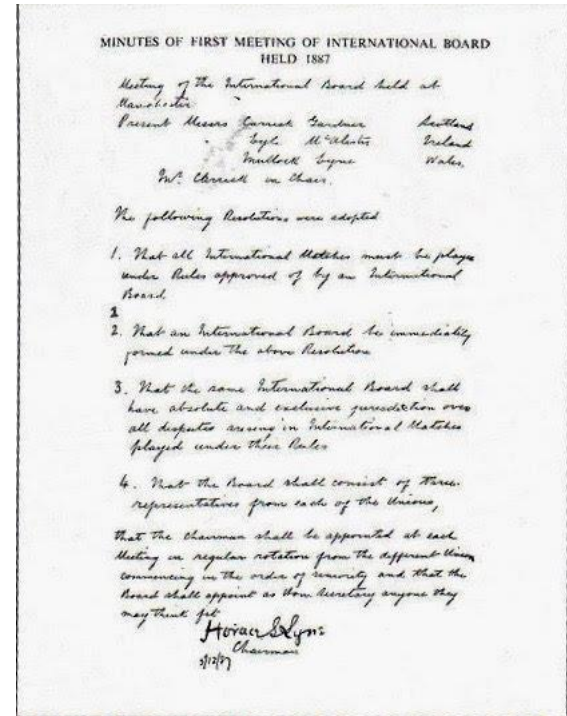 MINUTES OF FIRST MEETING OF INTERNATIONAL BOARD
HELD 1887
Meeting of the International Board held at
Manchester
Present Messrs Carrick Gardner Scotland
" Lyle McAlester Ireland
Mullock Lyne Wales
Mr. Carrick in Chair.
The following Resolutions were adopted
1. That all International Matches must be played
under Rules approved of by an International
Board
1
2. That an International Board be immediately
formed under the above Resolution
3. That the same International Board shall
have absolute and exclusive jurisdiction over
all disputes arising in International Matches
played under their Rules
4. That the Board shall consist of three
representatives from each of the Unions,
that the Chairman shall be appointed at each
Meeting in regular rotation from the different Unions
commencing in the order of seniority and that the
Board shall appoint as Hon Secretary anyone they
may think fit
Horace S Lyne
Chairman
5/12/87